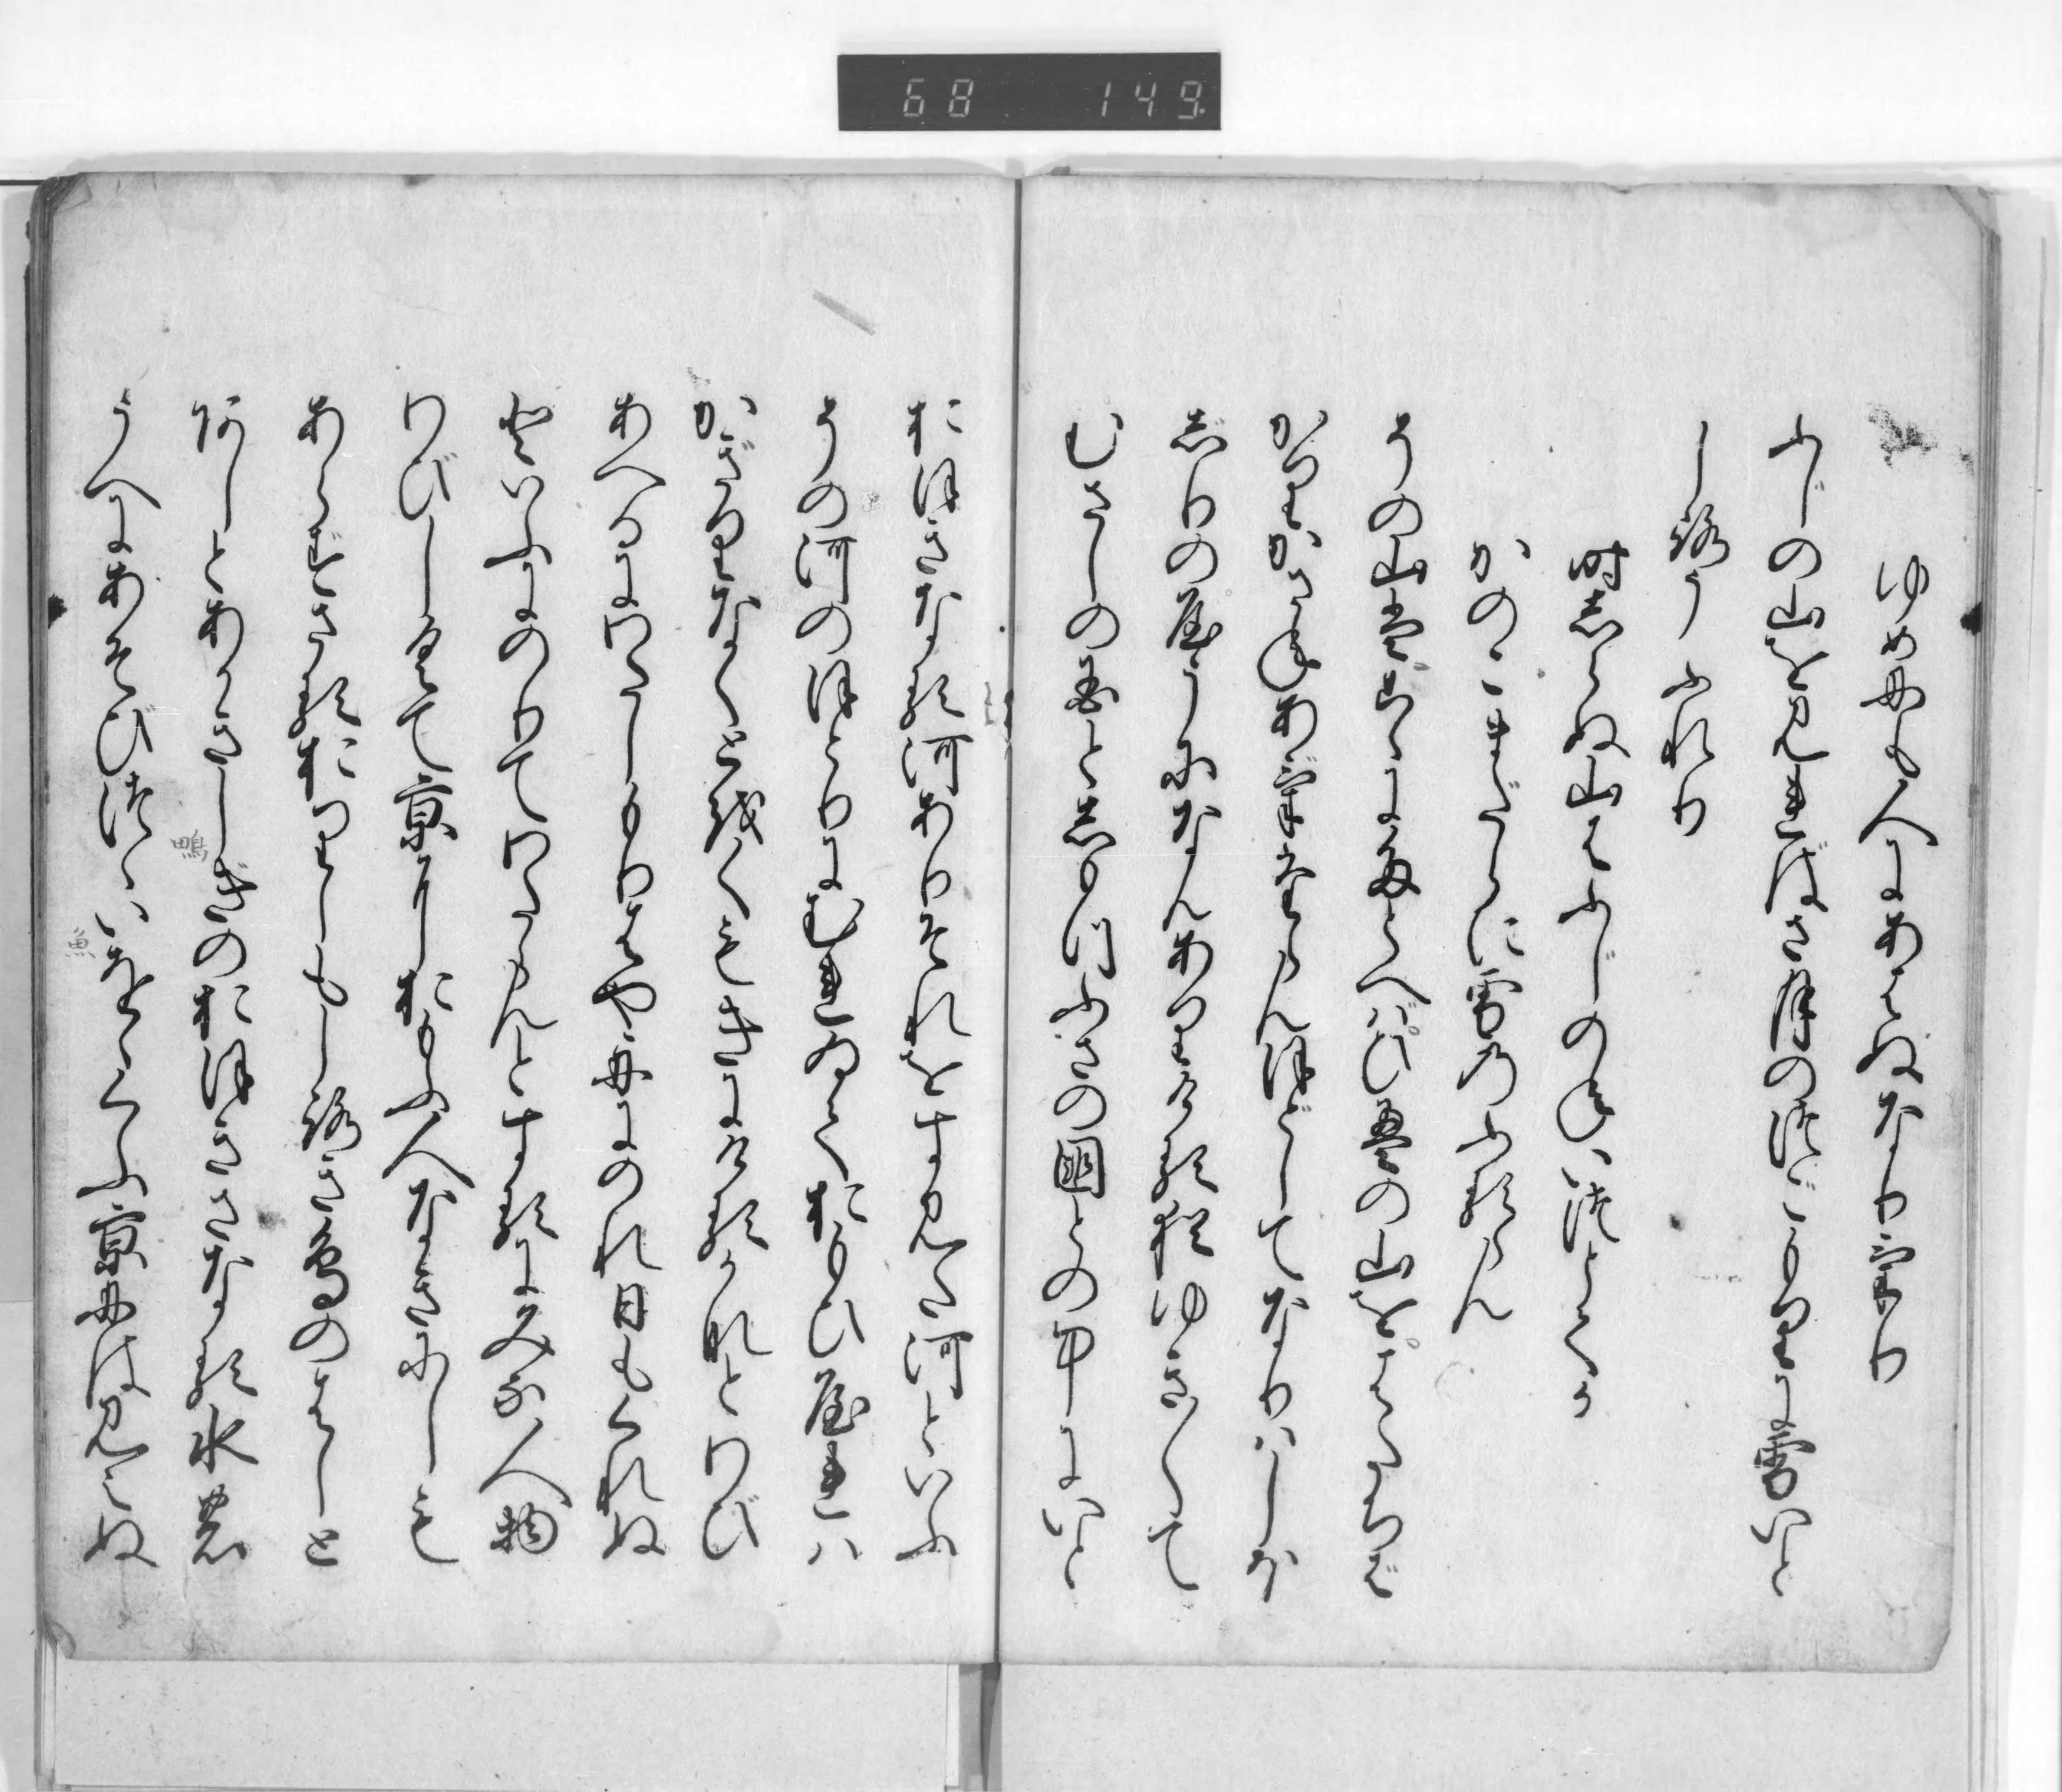 68 149
ゆめにも人にあはぬなりけり
ふじの山を見ればさ月のつごもりに雪いと
しろうふれり
時しらぬ山はふじのねいつとてか
かのこまだらに雪のふるらん
その山はこゝにたとへばひえの山をはたちば
かりかさねあげたらんほどしてなりはしほ
じりの屋うになんありける猶ゆき〳〵て
むさしの国としもつふさの国との中にいと
おほきなる河ありそれをすみた河といふ
その河のほとりにむれゐておもひ屋れハ
かぎりなくとをくもきにけるかなとわび
あへるにわたしもりはや舟にのれ日もくれぬ
といふにのりてわたらんとするにみな人物
わびしくて京におもふ人なきにしも
あらずさるおりしもしろき鳥のはしと
あしとあかきしぎのおほきさなる水の
鴫
うへにあそびつゝいをゝくふ京には見えぬ
魚